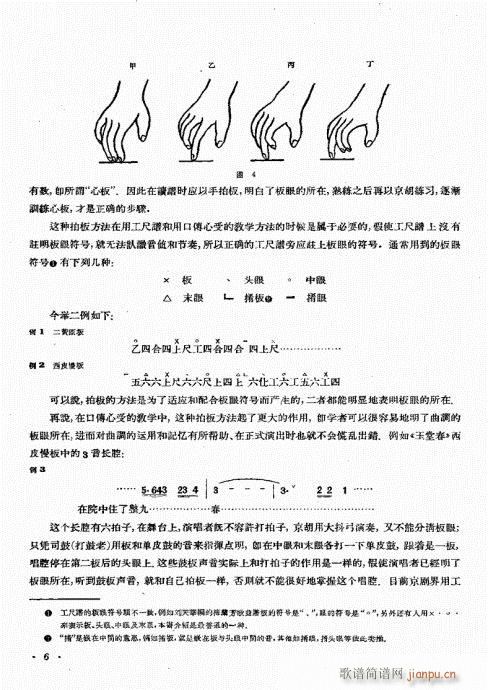 甲 乙 丙 丁
图 4
有数，即所谓“心板”．因此在讀譜时应以手拍板，明白了板眼的所在，熟練之后再以京胡練习，逐漸
訓練心板，才是正确的步驟．
这种拍板方法在用工尺譜和用口傳心受的教学方法的时候是属于必要的，假使工尺譜上沒有
註明板眼符号，就无法認識音值和节奏，所以正确的工尺譜旁应註上板眼的符号．通常用到的板眼
符号❶有下列几种：
× 板 、 头眼 ◦ 中眼
△ 末眼 ∟ 掯板❷ 一 掯眼
今举二例如下：
例 1 二黃原板
乙四合四上尺工四合四合 四上尺
例 2 西皮慢板
五六六上尺六六尺上四上 六化工六工五六工四
可以說，拍板的方法是为了适应和配合板眼符号而产生的，二者都能明显地表明板眼的所在．
再說，在口傳心受的教学中，这种拍板方法起了更大的作用，即学者可以很容易地明了曲調的
板眼所在，进而对曲調的运用和記忆有所帮助、在正式演出时也就不会慌乱出錯．例如《玉堂春》西
皮慢板中的 3 音长腔：
例 3
5·643 23 4 | 3 - - - | 3·ˇ 2 2 1
在院中住了整九 春
这个长腔有六拍子，在舞台上，演唱者既不容許打拍子，京胡用大抖弓演奏，又不能分清板眼；
只凭司鼓(打鼓老)用板和单皮鼓的音来指揮点明，即在中眼和末眼各打一下单皮鼓，跟着是一板，
唱腔停在第二板后的头眼上．这些鼓板声音实际上和打拍子的作用是一样的，假使演唱者已經明了
板眼所在，听到鼓板声音，就和自己拍板一样，否則就不能很好地掌握这个唱腔．目前京剧界用工
❶ 工尺譜的板眼符号頗不一致，例如刘天華編的梅蘭芳歌曲譜板的符号是“、”，眼的符号是“◦”，另外还有人用×·◦·
来表示板、头眼、中眼及末眼，本書介紹是最普通的一种．
❷ “掯”是嵌在中間的意思，例如掯板，就是嵌在板与头眼中間的音，其他如掯眼，掯头眼等依此类推．
· 6 ·
歌谱简谱网
jianpu.cn